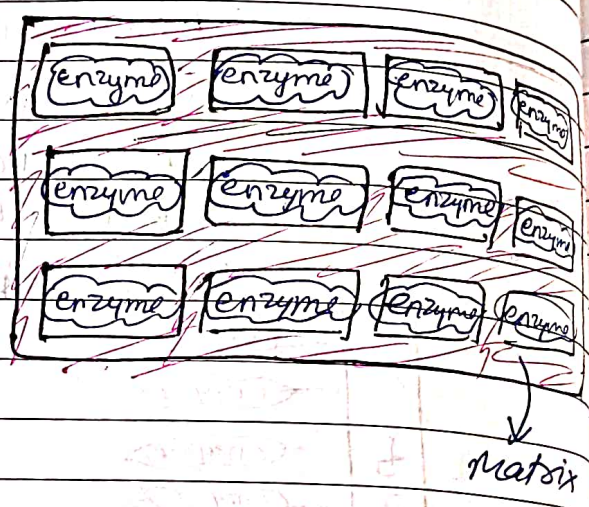 enzyme enzyme enzyme enzyme
enzyme enzyme enzyme enzyme
enzyme enzyme enzyme enzyme
Matrix